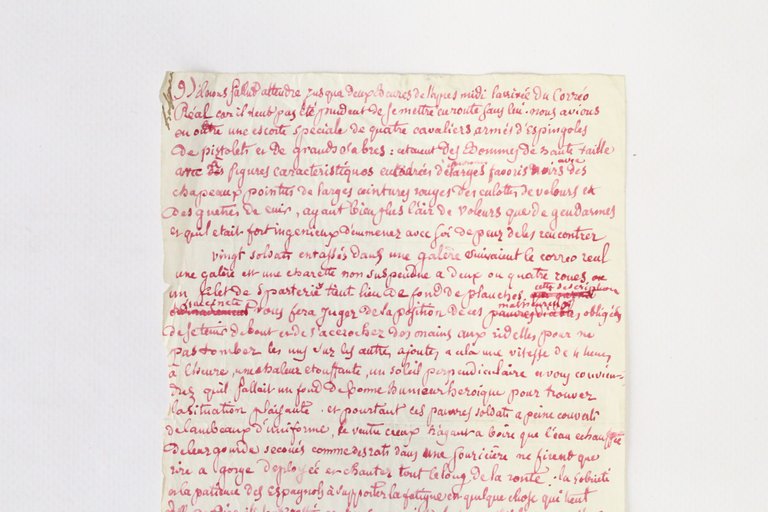 9) il nous fallut attendre jusqua deux heures de lapres midi larrivée du Correo
Réal car il neut pas été prudent de se mettre en route sans lui. nous avions
en outre une escorte speciale de quatre cavaliers armés d'espingoles
de pistolets et de grands sabres: cetaient des hommes de haute taille
avec des figures caracteristiques encadrés d'enormes larges favoris noirs avec des
chapeaux pointus de larges ceintures rouges des culottes de velours et
des guetres de cuir, ayant bien plus l'air de voleurs que de gendarmes
et qu'il etait fort ingenieux d'emmenez avec soi de peur de les rencontrer
vingt soldats entassés dans une galère suivaient le correo real
une galère est une charette non suspendue a deux ou quatre roues,
un filet de sparterie tient lieu de fond de planches. cette description
succincte vous fera juger de la position de ces malheureux, obligés
de se tenir debout et de s'accrochez des mains aux ridelles pour ne
pas tomber les uns sur les autres, ajoutez a cela une vitesse de 4 lieues
à l'heure, une chaleur etouffante, un soleil perpendiculaire et vous convien-
drez qu'il fallait un fond de bonne humeur heroique pour trouver
la situation plaisante. et pourtant ces pauvres soldats a peine couverts
de lambeaux d'uniforme, le ventre creux n'ayant a boire que l'eau echauffée
de leur gourde secoués comme des rats dans une souricière ne firent que
rire a gorge deployée et chanter tout le long de la route. la sobrieté
et la patience des Espagnols à supporter la fatigue est quelque chose qui tient